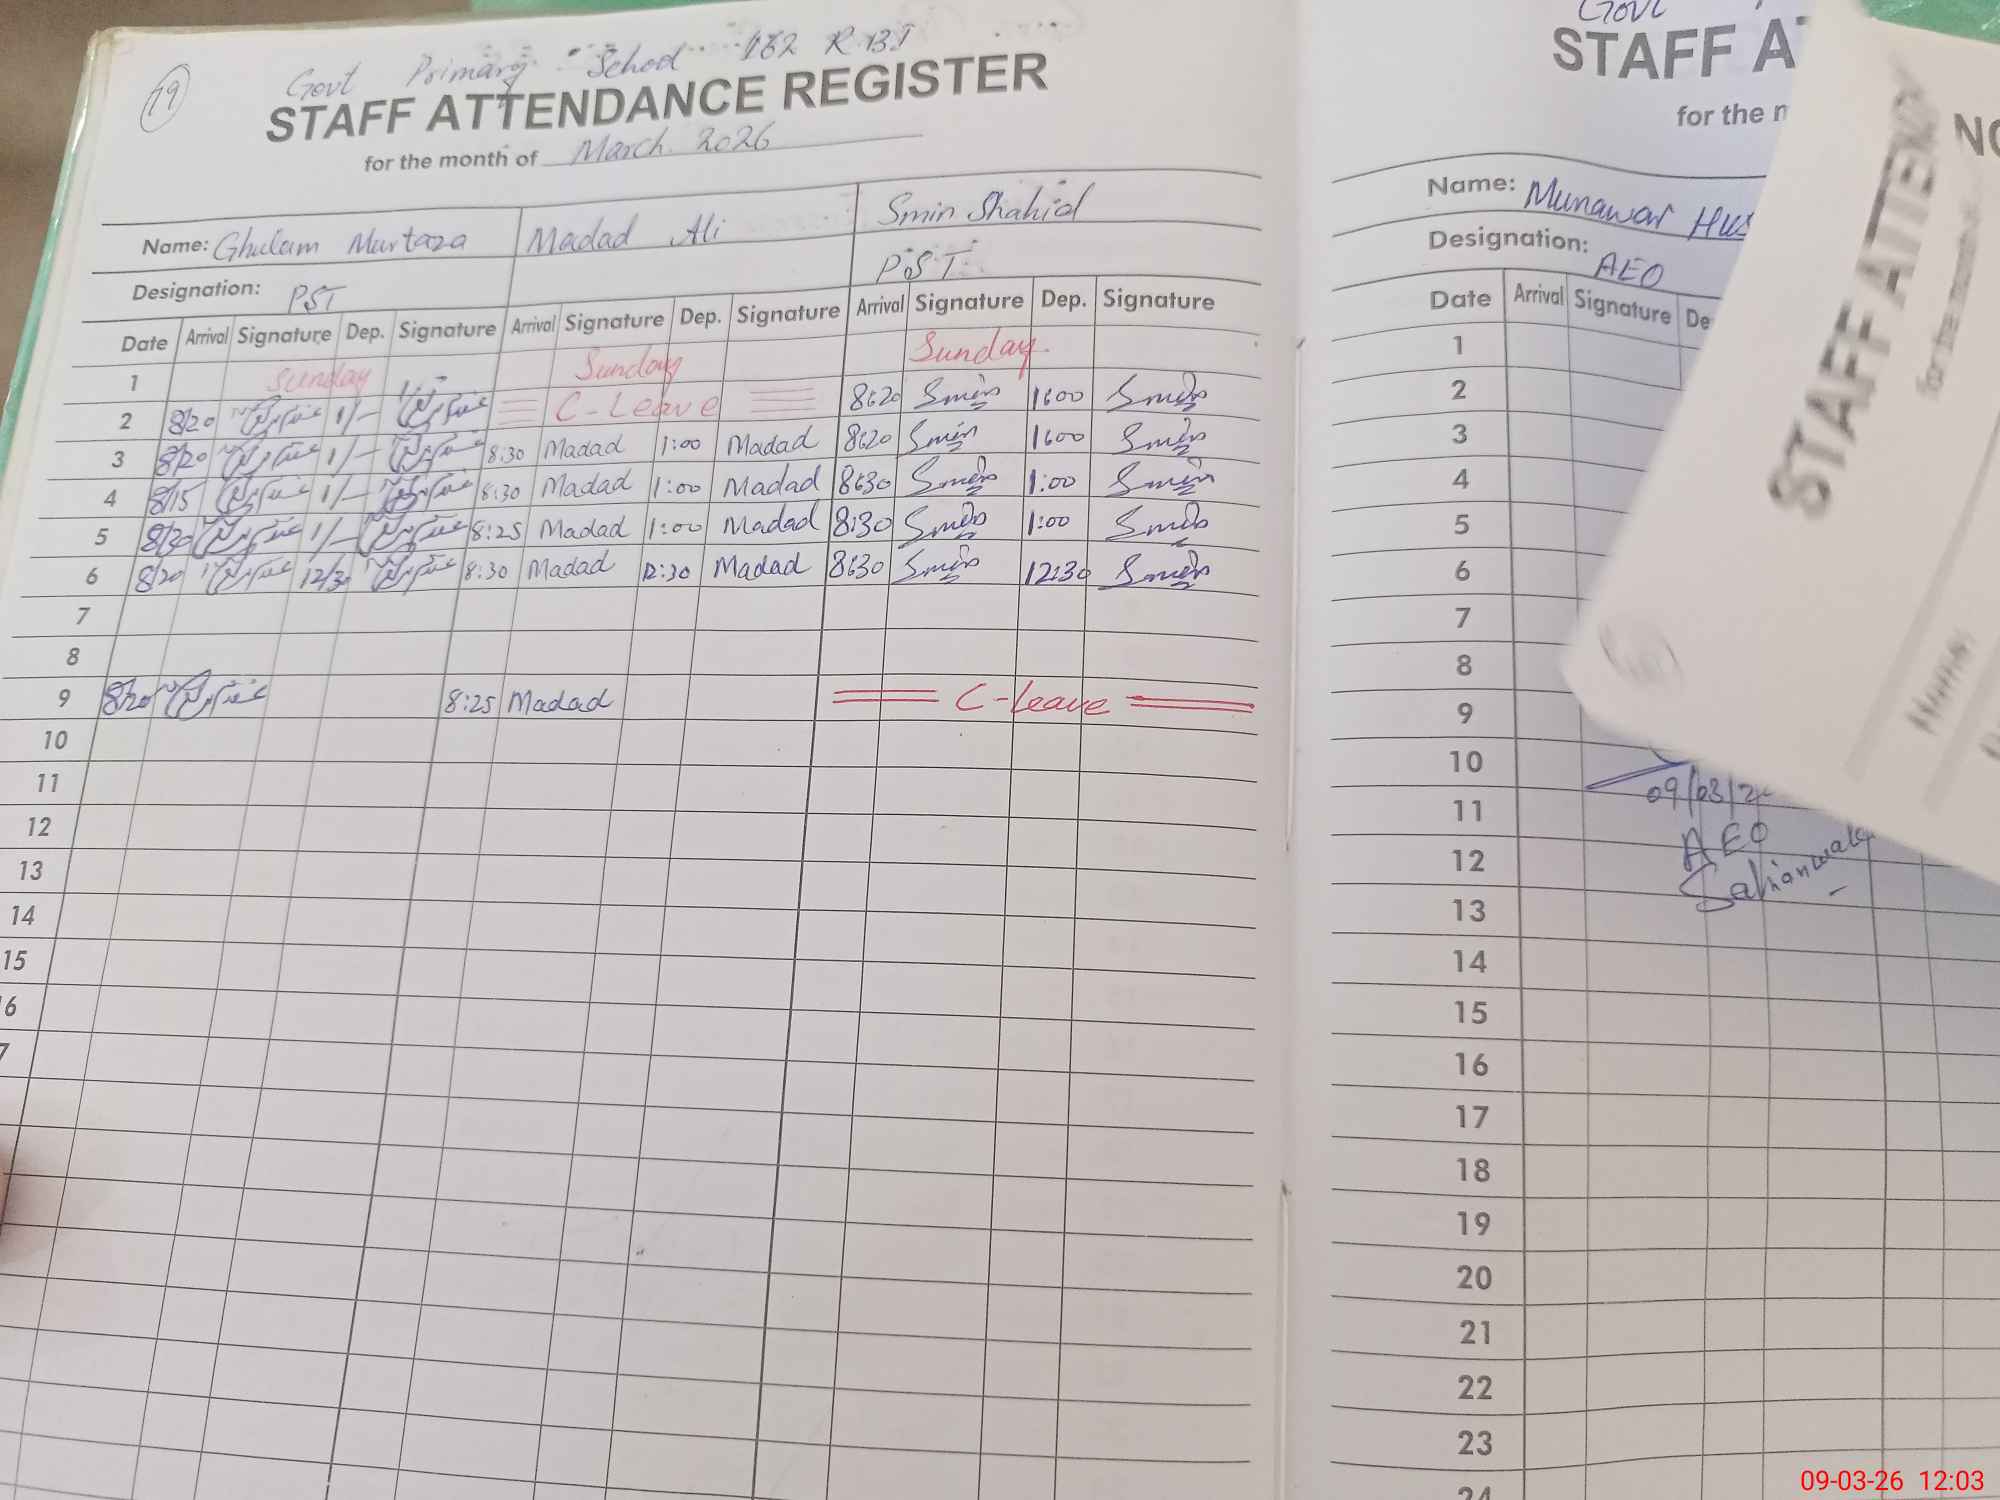 19
Govt Primary School 162 R.B I
STAFF ATTENDANCE REGISTER
for the month of March 2026
Name: Ghulam Murtaza Madad Ali Smin Shahid
Designation: PST P.S.T
Date Arrival Signature Dep. Signature Arrival Signature Dep. Signature Arrival Signature Dep. Signature
1 Sunday Sunday Sunday
2 8/20 1/- C-Leave 8:20 Smin 1:00 Smin
3 8/20 1/- 8:30 Madad 1:00 Madad 8:20 Smin 1:00 Smin
4 8/15 1/- 8:30 Madad 1:00 Madad 8:30 Smin 1:00 Smin
5 8/20 1/- 8:25 Madad 1:00 Madad 8:30 Smin 1:00 Smin
6 8/20 12/30 8:30 Madad 12:30 Madad 8:30 Smin 12:30 Smin
7
8
9 8/20 8:25 Madad C-Leave
10
11
12
13
14
15
16
Govt
STAFF A
for the
Name: Munawar
Designation: AEO
Date Arrival Signature De
1
2
3
4
5
6
7
8
9
10
09/03/2
11
AEO
12
Sahianwala
13
14
15
16
17
18
19
20
21
22
23
24
STAFF ATTEN
for the month of
09-03-26 12:03